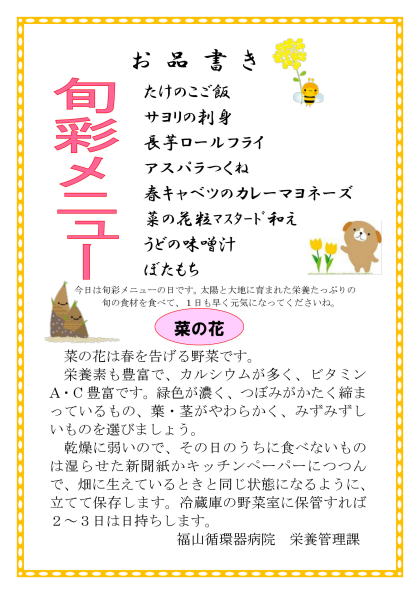 お品書き
旬彩メニュー
たけのこご飯
サヨリの刺身
長芋ロールフライ
アスパラつくね
春キャベツのカレーマヨネーズ
菜の花粒マスタード和え
うどの味噌汁
ぼたもち
今日は旬彩メニューの日です。太陽と大地に育まれた栄養たっぷりの
旬の食材を食べて、１日も早く元気になってくださいね。
菜の花
菜の花は春を告げる野菜です。
栄養素も豊富で、カルシウムが多く、ビタミン
A・C豊富です。緑色が濃く、つぼみがかたく締ま
っているもの、葉・茎がやわらかく、みずみずし
いものを選びましょう。
乾燥に弱いので、その日のうちに食べないもの
は湿らせた新聞紙かキッチンペーパーにつつん
で、畑に生えているときと同じ状態になるように、
立てて保存します。冷蔵庫の野菜室に保管すれば
２～３日は日持ちします。
福山循環器病院　栄養管理課